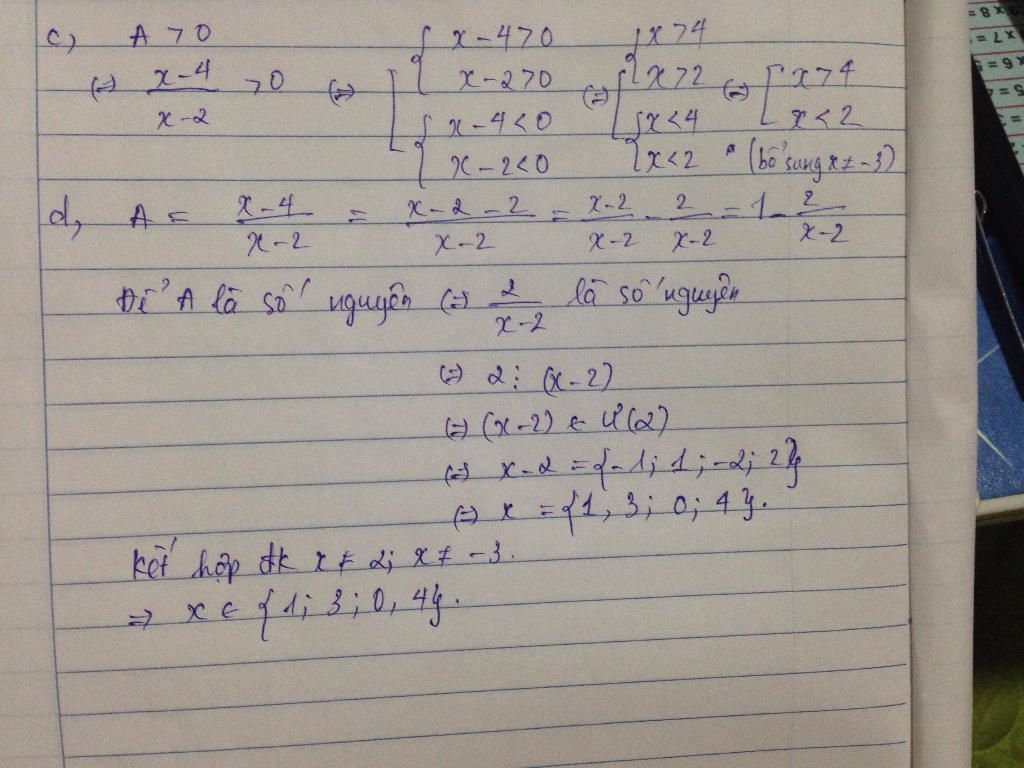 c, A > 0
(=) x-4/x-2 > 0 (=) [ { x-4>0 x-2>0 { x-4<0 x-2<0 (=) [ { x>4 x>2 { x<4 x<2 (=) [ x>4 x<2
(bổ sung x ≠ -3)
d, A = x-4/x-2 = x-2-2/x-2 = x-2/x-2 - 2/x-2 = 1 - 2/x-2
Để A là số nguyên (=) 2/x-2 là số nguyên
(=) 2 ⋮ (x-2)
(=) (x-2) ∈ Ư(2)
(=) x-2 = {-1; 1; -2; 2}
(=) x = {1, 3; 0; 4}.
Kết hợp đk x ≠ 2; x ≠ -3.
=> x ∈ {1; 3; 0, 4}.